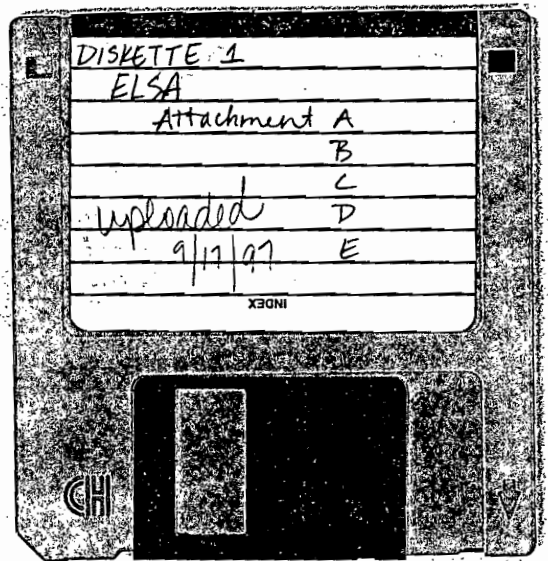 DISKETTE 1
ELSA
Attachment A
B
C
uploaded D
9/17/97 E
INDEX
HD